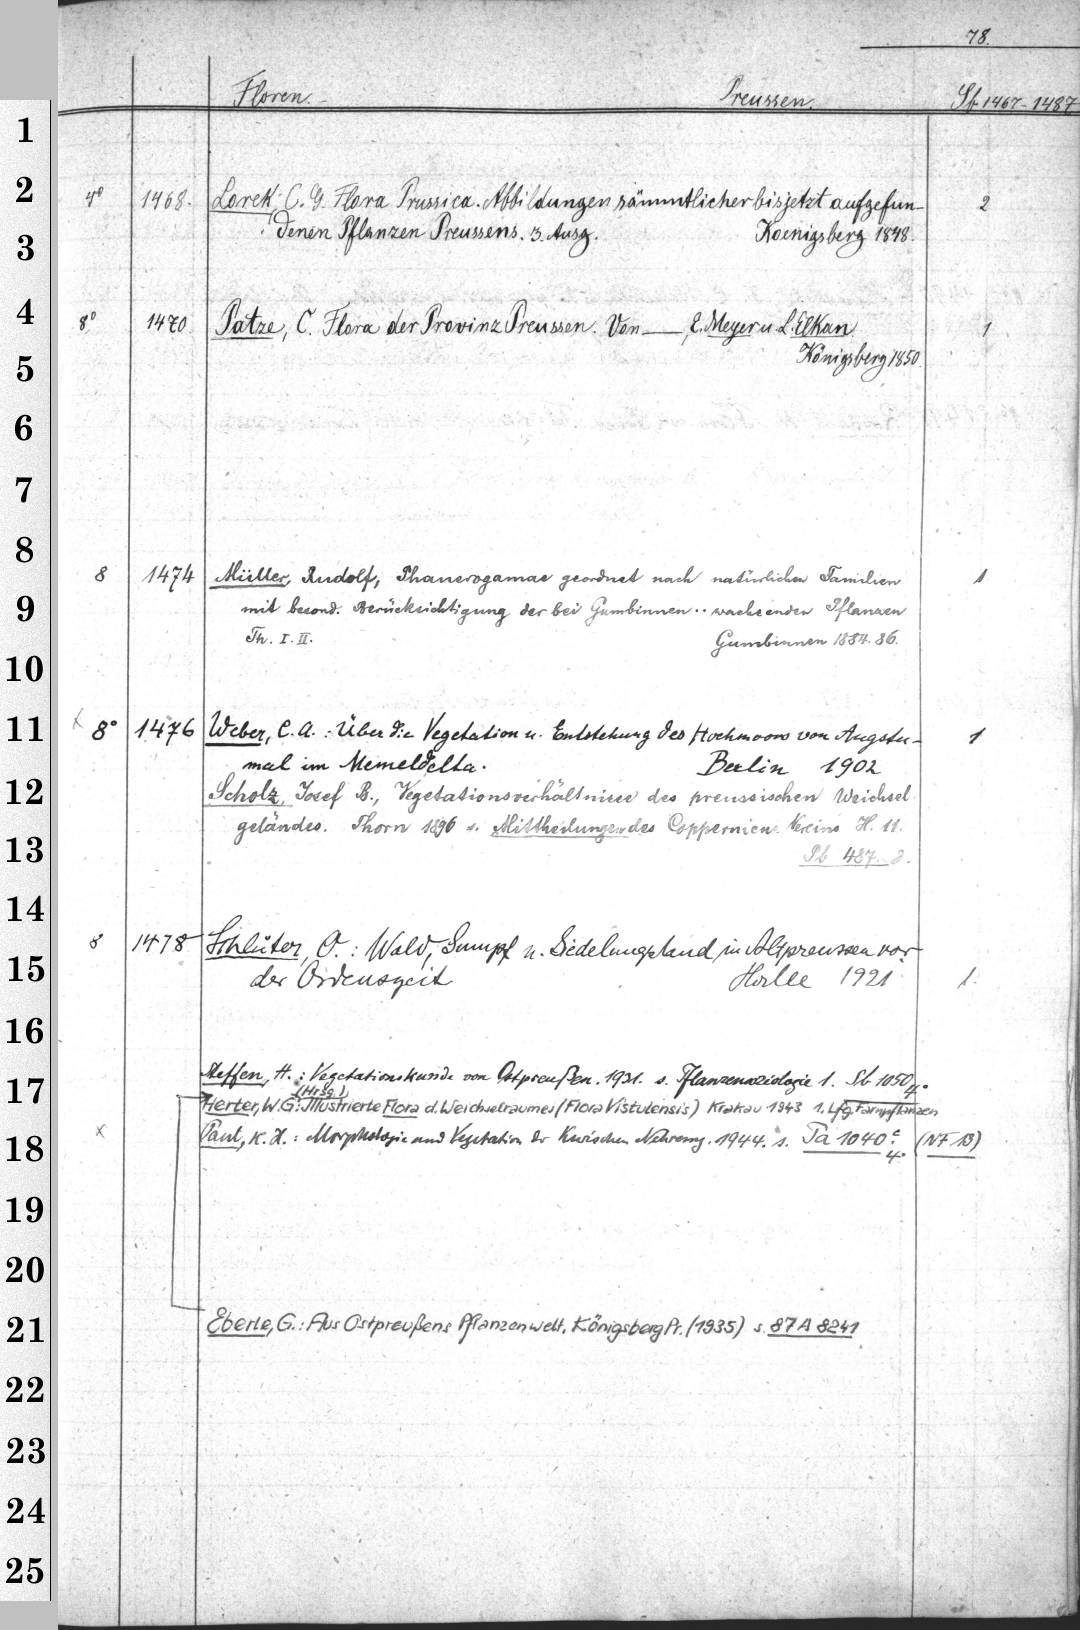 78.
Floren. Preussen. Sb 1467-1487
1
2
3
4
5
6
7
8
9
10
11
12
13
14
15
16
17
18
19
20
21
22
23
24
25
4° 1468. Lorek, C. G. Flora Prussica. Abbildungen sämmtlicher bis jetzt aufgefun- 2
denen Pflanzen Preussens. 3. Ausg. Koenigsberg 1848.
8° 1470 Patze, C. Flora der Provinz Preussen. Von —, E. Meyer u. L. Elkan 1
Königsberg 1850.
8 1474 Müller, Rudolf, Phanerogamae geordnet nach natürlichen Familien 1
mit besond. Berücksichtigung der bei Gumbinnen .. wachsenden Pflanzen
Th. I. II. Gumbinnen 1884. 86.
x 8° 1476 Weber, C. A. : Über die Vegetation u. Entstehung des Hochmoors von Augstu- 1
mal im Memeldelta. Berlin 1902
Scholz, Josef B., Vegetationsverhältnisse des preussischen Weichsel
geländes. Thorn 1896 s. Mittheilungen des Coppernicus Vereins H. 11.
Pb 487
8 1478 Schlüter, O. : Wald, Sumpf u. Siedelungsland in Altpreussen vor
der Ordenszeit Halle 1921 1.
Steffen, H. : Vegetationskunde von Ostpreußen. 1931. s. Pflanzensoziologie 1. Sb 1050 4°
(Hrsg.)
Herter, W. G.: Illustrierte Flora d. Weichselraumes (Flora Vistulensis) Krakau 1943 1. Lfg. Farnpflanzen
x Paul, K. H. : Morphologie und Vegetation der Kurischen Nehrung. 1944. s. Pa 1040 c 4° (NF 13)
Eberle, G.: Aus Ostpreußens Pflanzenwelt. Königsberg Pr. (1935) s. 87 A 8241